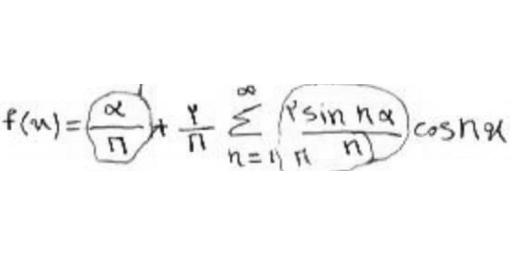 f(x) = α/π + ۲/π ∑_{n=1}^{∞} (۲ sin nα)/(π n) cos nx